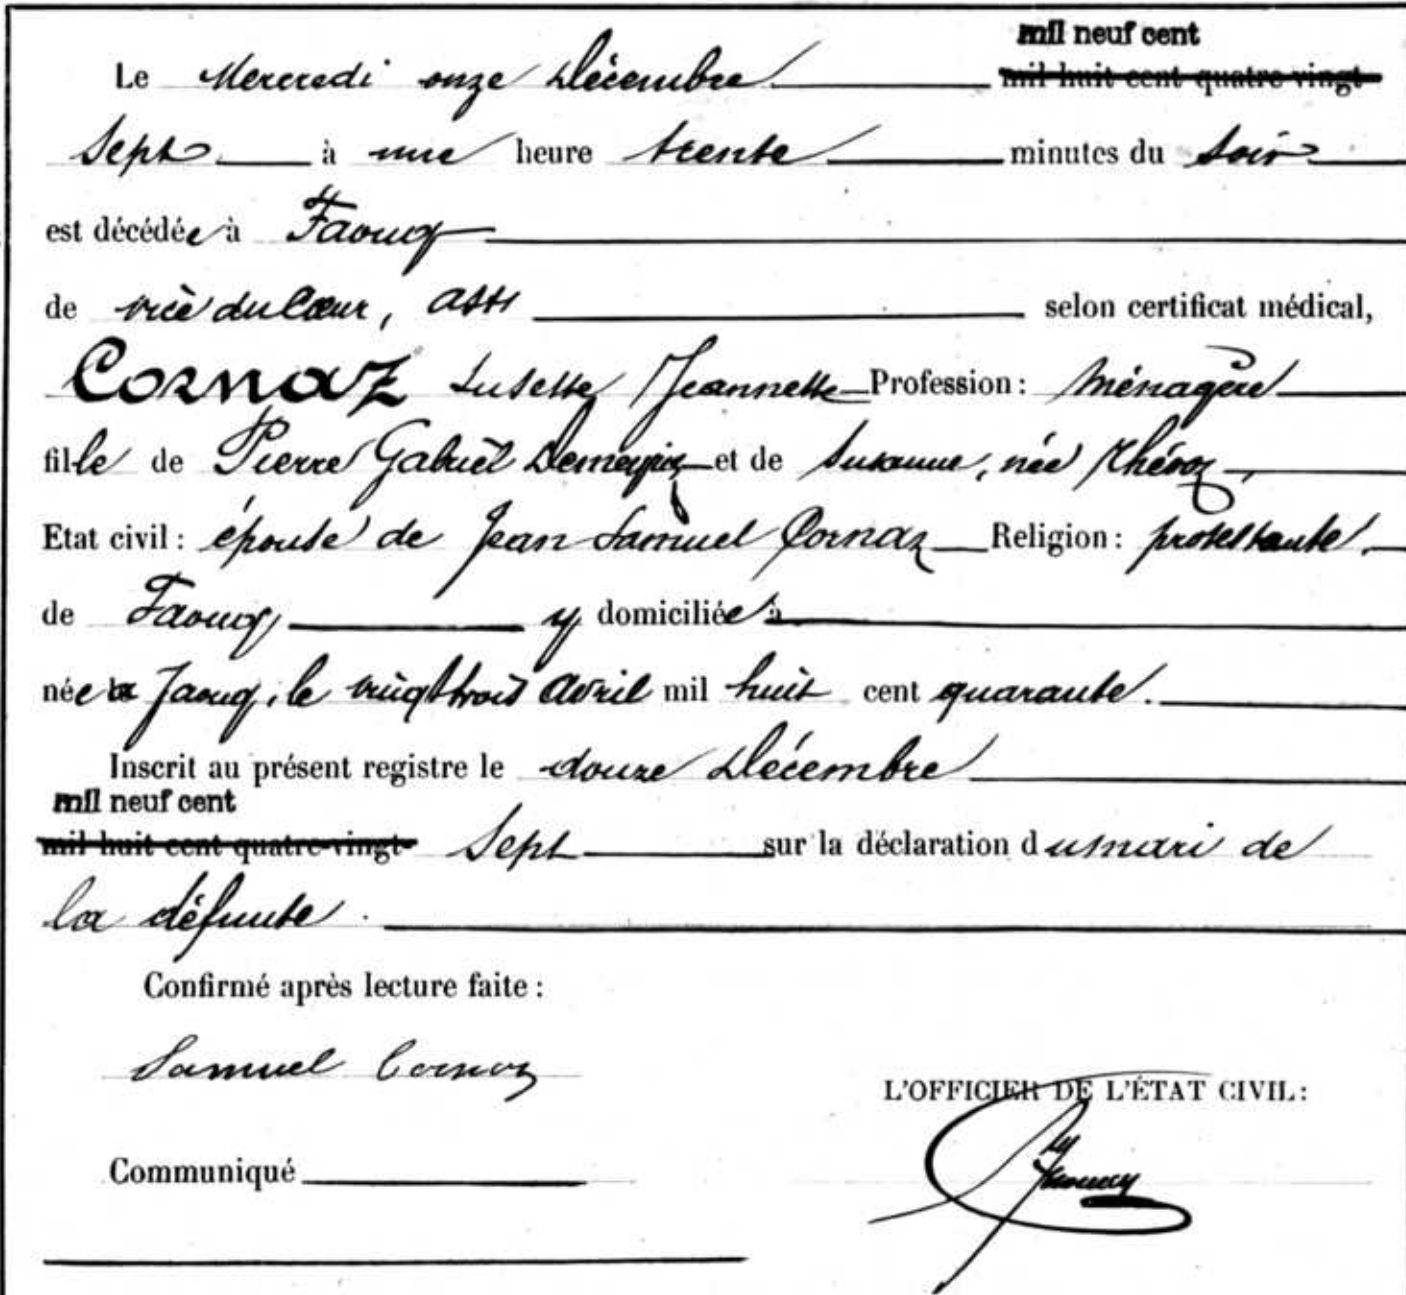 mil neuf cent
Le Mercredi onze Décembre mil huit cent quatre-vingt-
Sept à une heure trente minutes du soir
est décédée à Faoug
de vice du Cœur, asth selon certificat médical,
Cornaz Susette Jeannette Profession: Ménagère
fille de Pierre Gabriel et de Susanne, née
Etat civil: épouse de Jean Samuel Cornaz Religion: protestante,
de Faoug, y domiciliée à
née à Faoug, le vingt trois Avril mil huit cent quarante.
Inscrit au présent registre le douze Décembre
mil neuf cent
mil huit cent quatre-vingt- Sept sur la déclaration du mari de
la défunte.
Confirmé après lecture faite:
Samuel Cornaz
L'OFFICIER DE L'ÉTAT CIVIL:
Communiqué